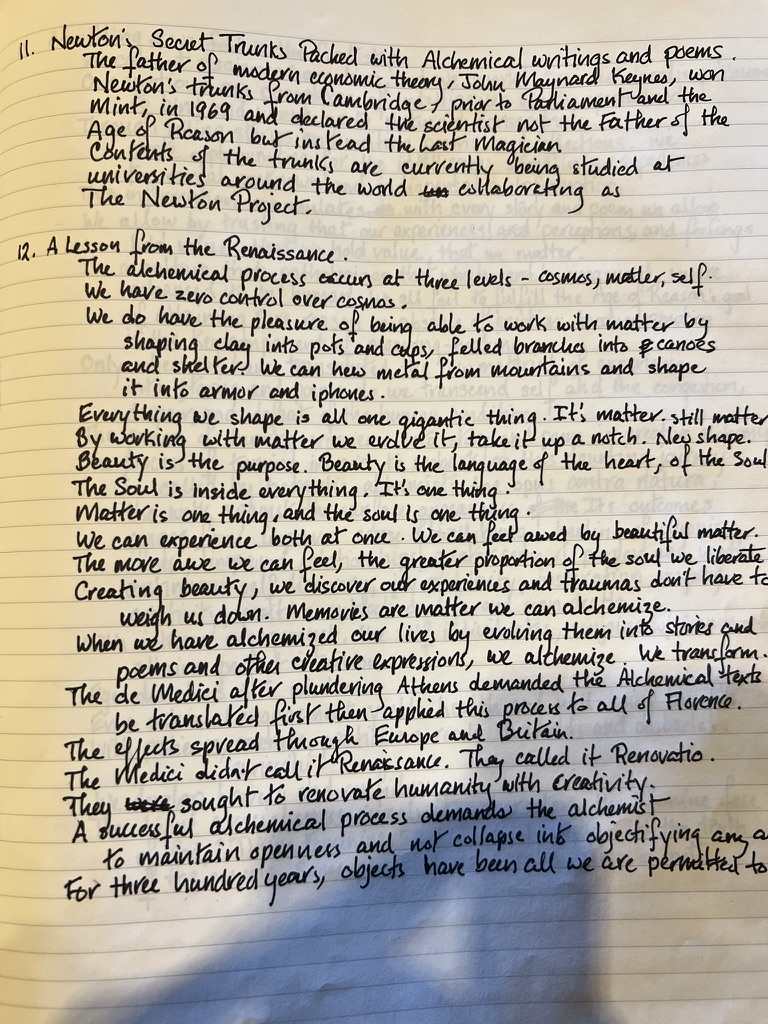 11. Newton's Secret Trunks Packed with Alchemical writings and poems.
The father of modern economic theory, John Maynard Keynes, won
Newton's trunks from Cambridge, prior to Parliament and the
Mint, in 1969 and declared the scientist not the Father of the
Age of Reason but instead the Last Magician.
Contents of the trunks are currently being studied at
universities around the world collaborating as
The Newton Project.
12. A Lesson from the Renaissance.
The alchemical process occurs at three levels - cosmos, matter, self.
We have zero control over cosmos.
We do have the pleasure of being able to work with matter by
shaping clay into pots and cups, felled branches into canoes
and shelter. We can hew metal from mountains and shape
it into armor and iphones.
Everything we shape is all one gigantic thing. It's matter. still matter
By working with matter we evolve it, take it up a notch. New shape.
Beauty is the purpose. Beauty is the language of the heart, of the Soul
The Soul is inside everything. It's one thing.
Matter is one thing, and the soul is one thing.
We can experience both at once. We can feel awed by beautiful matter.
The more awe we can feel, the greater proportion of the soul we liberate
Creating beauty, we discover our experiences and traumas don't have to
weigh us down. Memories are matter we can alchemize.
When we have alchemized our lives by evolving them into stories and
poems and other creative expressions, we alchemize. We transform.
The de Medici after plundering Athens demanded the Alchemical texts
be translated first then applied this process to all of Florence.
The effects spread through Europe and Britain.
The Medici didn't call it Renaissance. They called it Renovatio.
They sought to renovate humanity with creativity.
A successful alchemical process demands the alchemist
to maintain openness and not collapse into objectifying any
For three hundred years, objects have been all we are permitted to